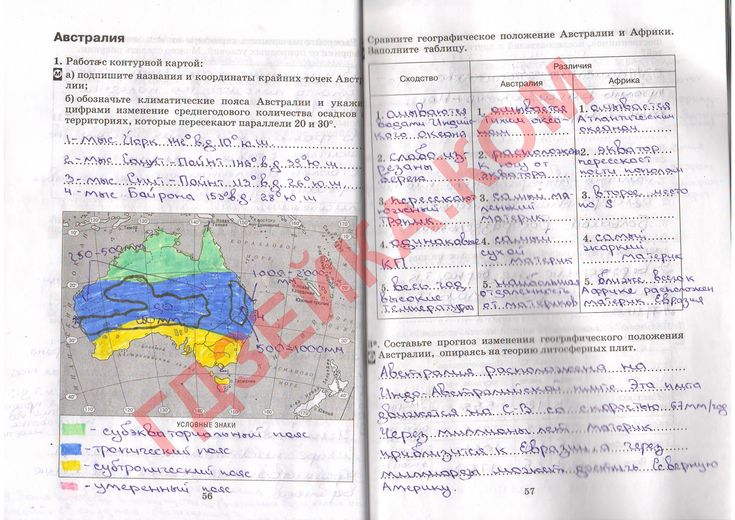 Австралия
1. Работа с контурной картой:
а) подпишите названия и координаты крайних точек Австра
лии;
б) обозначьте климатические пояса Австралии и укажи
цифрами изменение среднегодового количества осадков
территориях, которые пересекают параллели 20 и 30°.
1- мыс Йорк 142° в.д. 10° ю.ш.
2- мыс Саут-Пойнт 146° в.д. 39° ю.ш
3- мыс Стип-Пойнт 113° в.д. 26° ю.ш
4- мыс Байрона 153° в.д. 28° ю.ш
250-500мм
1000-2000
мм
500-1000мм
УСЛОВНЫЕ ЗНАКИ
- субэкваториальный пояс
- тропический пояс
- субтропический пояс
- умеренный пояс
56
Сравните географическое положение Австралии и Африки.
Заполните таблицу.
Сходство
Различия
Австралия
Африка
1. омываются
водами Индий
ского океана
1. омывается
Тихим океа-
ном
1. омывается
Атлантическим
океаном
2. Слабо из-
резаны
берега
2. расположена
к югу от
экватора
2. экватор
пересекает
почти пополам
3. пересекают
южный
тропик
3. самый ма-
ленький
материк
3. второе место
по S
4. одинаковые
КП
4. самый
сухой
материк
4. самый
жаркий
материк
5. весь год
высокие
температуры
5. наибольшая
отдаленность
от материков
5. ближе всего к
Африке расположен
материк Евразия
3*. Составьте прогноз изменения географического положения
Австралии, опираясь на теорию литосферных плит.
Австралия расположена на
Индо-Австралийской плите. Эта плита
движется на С-В со скоростью 67мм/год
Через миллионы лет материк
приблизится к Евразии, а через
миллиард может достичь Северную
Америку.
57
ГДЗЕЙКА.КОМ